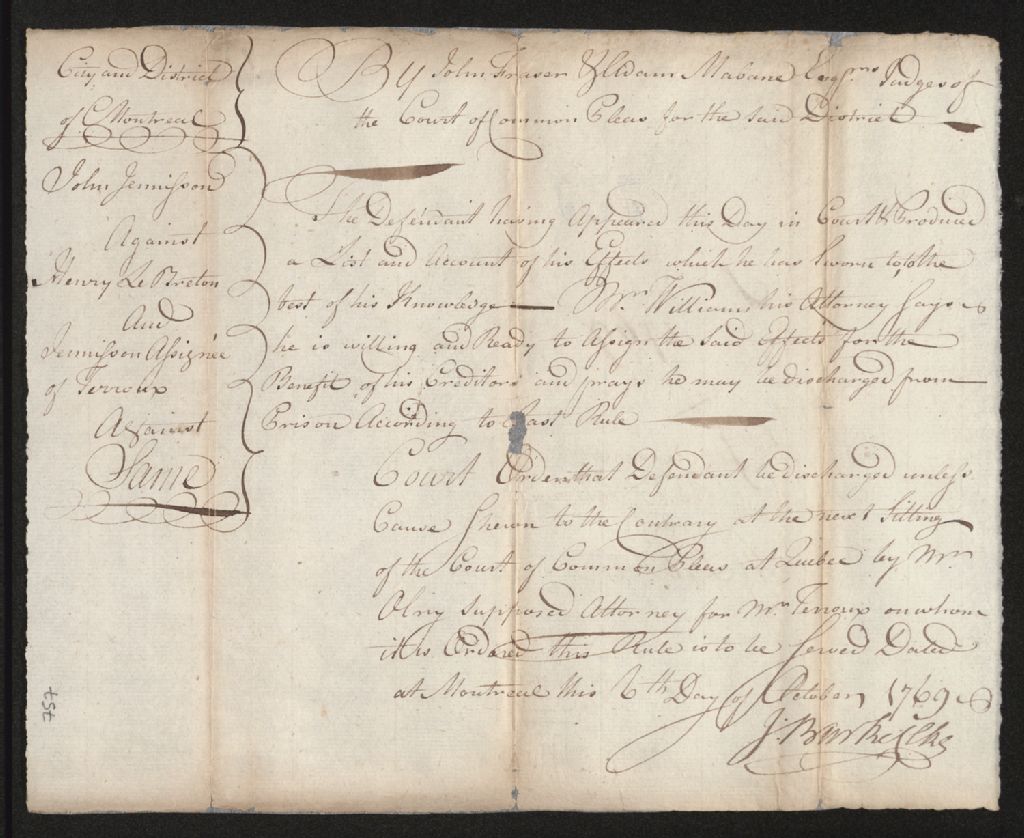 City and District
of Montreal
John Jennisson
Against
Henry Le Breton
And
Jennisson Assignee
of Terroux
Against
Same
By John Fraser & Adam Mabane Esqrs. Judges of
the Court of Common Pleas for the said District
The Defendant having Appeared this Day in Court & Produced
a List and Account of his Effects which he has Sworn to, to the
best of his Knowledge — Mr. Williams his Attorney Says
he is willing and Ready to Assign the said Effects for the
Benefit of his Creditors and prays he may be discharged from
Prison According to Last Rule
Court Orders that Defendant be discharged unless
Cause Shewn to the Contrary at the next Sitting
of the Court of Common Pleas at Quebec by Mr.
Olry supposed Attorney for Mr. Terroux on whom
it is Ordered this Rule is to be Served Dated
at Montreal this 6th Day of October 1769
J. Burke Clke
757